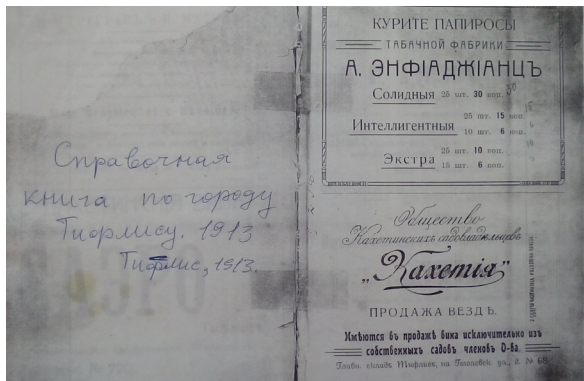 Справочная
книга по городу
Тифлису. 1913
Тифлис, 1913.
КУРИТЕ ПАПИРОСЫ
ТАБАЧНОЙ ФАБРИКИ
А. ЭНФІАДЖІАНЦЪ
Солидныя 25 шт. 30 коп. 30
25 шт. 15 коп.
Интеллигентныя
10 шт. 6 коп.
25 шт. 10 коп.
Экстра
15 шт. 6 коп.
Общество
Кахетинскихъ садовладѣльцевъ
„Кахетія"
ПРОДАЖА ВЕЗДѢ.
Имѣются въ продажѣ вина исключительно изъ
собственныхъ садовъ членовъ О-ва.
Главн. складъ Тифлисъ, на Гоголевск. ул., д. № 68